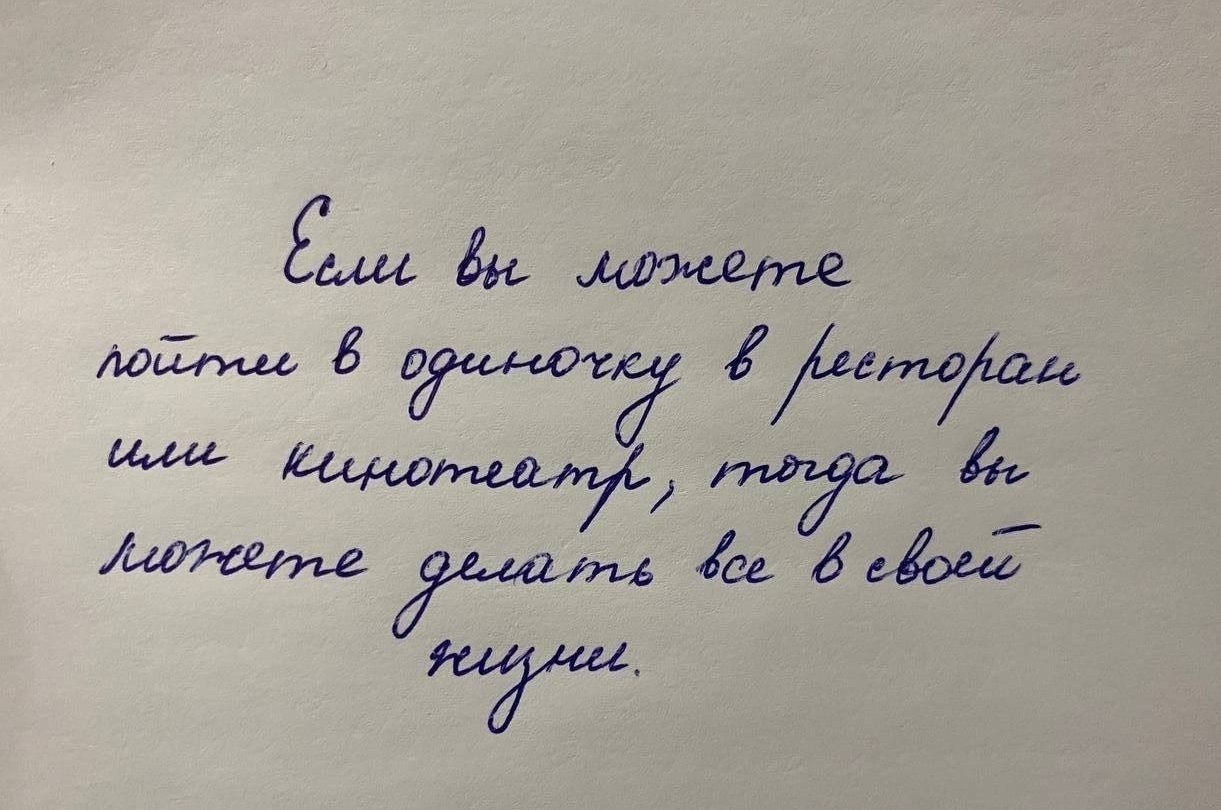 Если вы можете
пойти в одиночку в ресторан
или кинотеатр, тогда вы
можете делать все в своей
жизни.